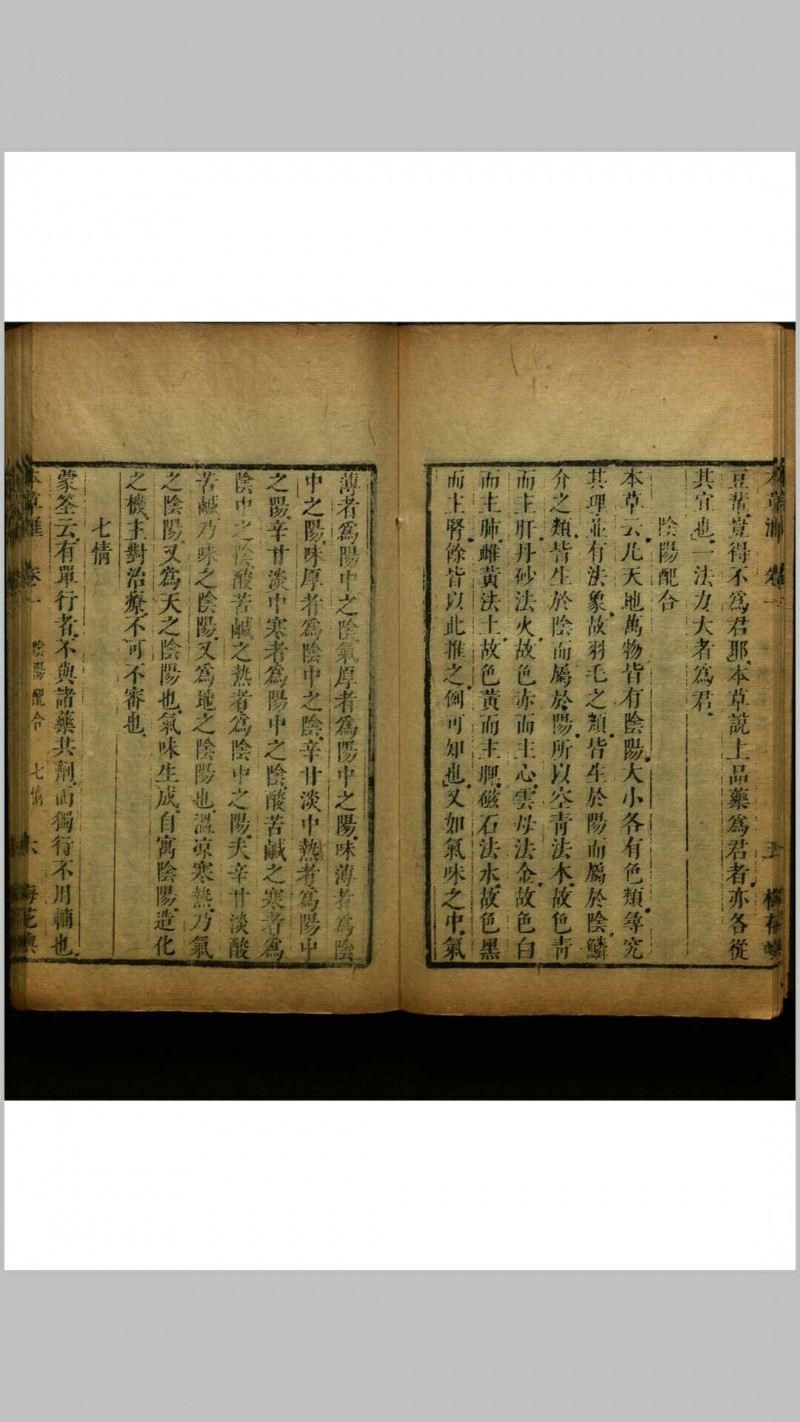 豆蔻豈得不爲君耶本草說上品藥爲君者亦各從
其宜也一法力大者爲君
陰陽配合
本草云凡天地萬物皆有陰陽大小各有色類尋究
其理並有法象故羽毛之類皆生於陽而屬於陰鱗
介之類皆生於陰而屬於陽所以空青法木故色青
而主肝丹砂法火故色赤而主心雲母法金故色白
而主肺雌黃法土故色黃而主脾磁石法水故色黑
而主腎餘皆以此推之例可知也又如氣味之中氣
薄者爲陽中之陰氣厚者爲陽中之陽味薄者爲陰
中之陽味厚者爲陰中之陰辛甘淡中熱者爲陽中
之陽辛甘淡中寒者爲陽中之陰酸苦鹹之寒者爲
陰中之陰酸苦鹹之熱者爲陰中之陽夫辛甘淡酸
苦鹹乃味之陰陽又爲地之陰陽也溫涼寒熱乃氣
之陰陽又爲天之陰陽也氣味生成自寓陰陽造化
之機主對治療不可不審也
七情
蒙筌云有單行者不與諸藥共劑而獨行不用輔也
本草 卷一 陰陽配合 七情 六